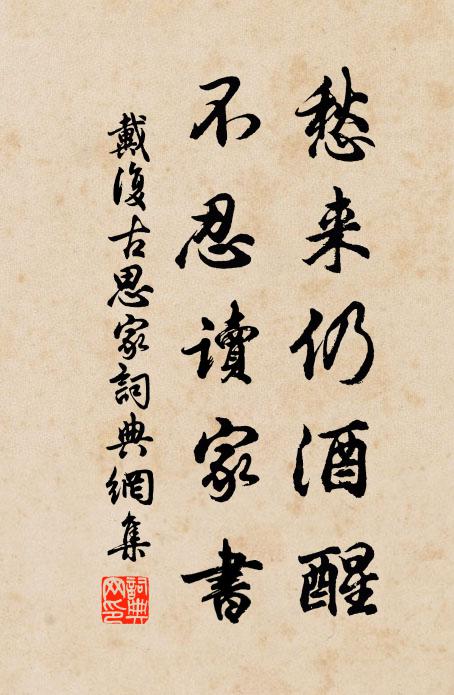 愁来仍酒醒
不忍讀家書
戴復古思家詞典網集
詞典
网印